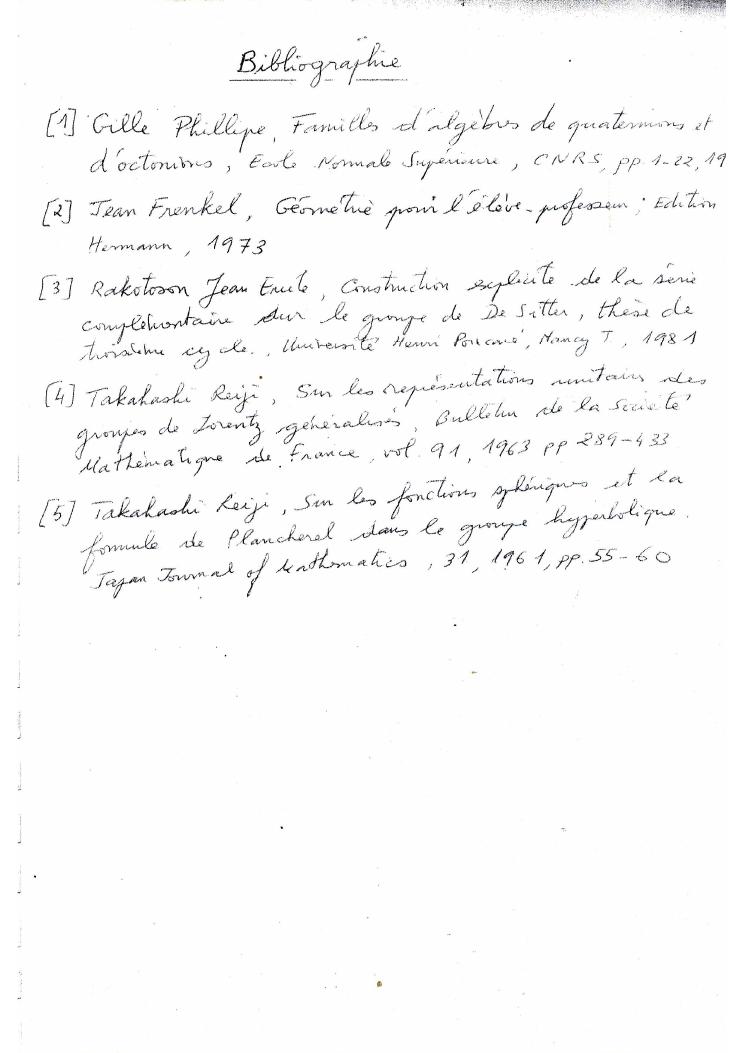 Bibliographie
[1] Gille Phillipe, Familles d'algèbres de quaternions et
d'octonions, Ecole Normale Supérieure, CNRS, pp 1-22, 19
[2] Jean Frenkel, Géométrie pour l'élève-professeur; Edition
Hermann, 1973
[3] Rakotoson Jean Emile, Construction explicite de la série
complémentaire sur le groupe de De Sitter, thèse de
troisième cycle., Université Henri Poincaré, Nancy I, 1981
[4] Takahashi Reiji, Sur les représentations unitaires des
groupes de Lorentz généralisés, Bulletin de la Société
Mathématique de France, vol. 91, 1963 pp 289-433
[5] Takahashi Reiji, Sur les fonctions sphériques et la
formule de Plancherel dans le groupe hyperbolique.
Japan Journal of Mathematics, 31, 1961, pp. 55-60